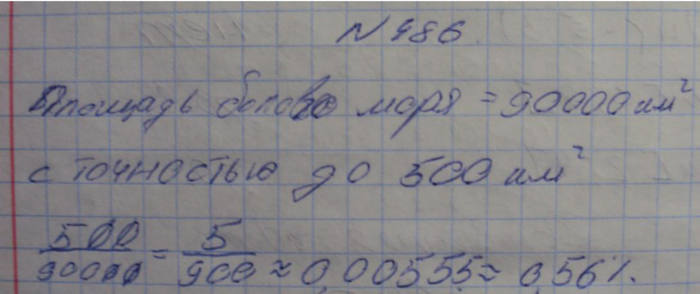 N 486
Площадь белого моря = 90000 км²
с точностью до 500 км²
500/90000 = 5/900 ≈ 0,00555 ≈ 0,56%.